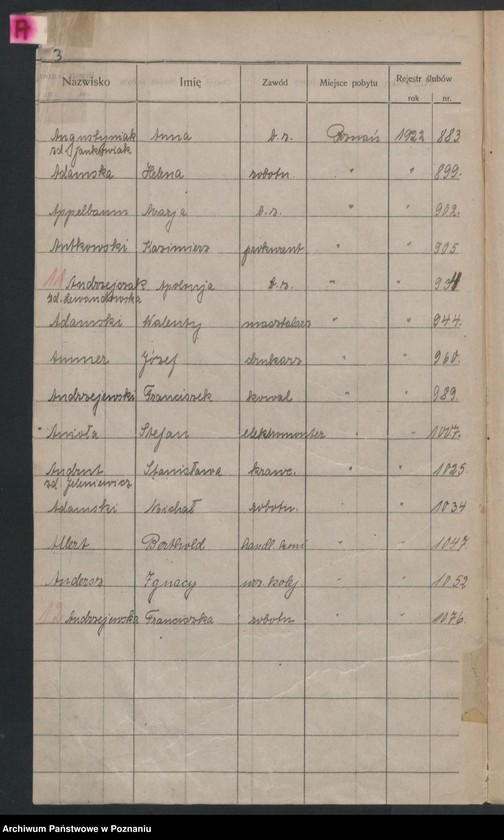 A
3
Nazwisko Imię Zawód Miejsce pobytu Rejestr ślubów
rok nr.
Augustyniak Anna b. z. Poznań 1922 883
zd. Jankowiak
Adamska Helena robotn. " " 899.
Appelbaum Marja b. z. " " 902.
Antkowski Kazimierz " " 905
11 Andrzejczak Apolonja b. z. " " 931
zd. Lewandowska
Adamski Walenty masztalerz " " 944.
Ammer Józef drukarz " " 960.
Andrzejewski Franciszek kowal " " 989.
Anioła Stefan elektromonter " " 1007.
Andrut Stanisława krawc. " " 1025
zd. Jeleniewicz
Adamski Michał robotn. " " 1034
Albert Berthold handl. koni " " 1047
Andersz Ignacy urz. kolej " " 1052
12 Andrzejewska Franciszka robotn " " 1076.
Archiwum Państwowe w Poznaniu